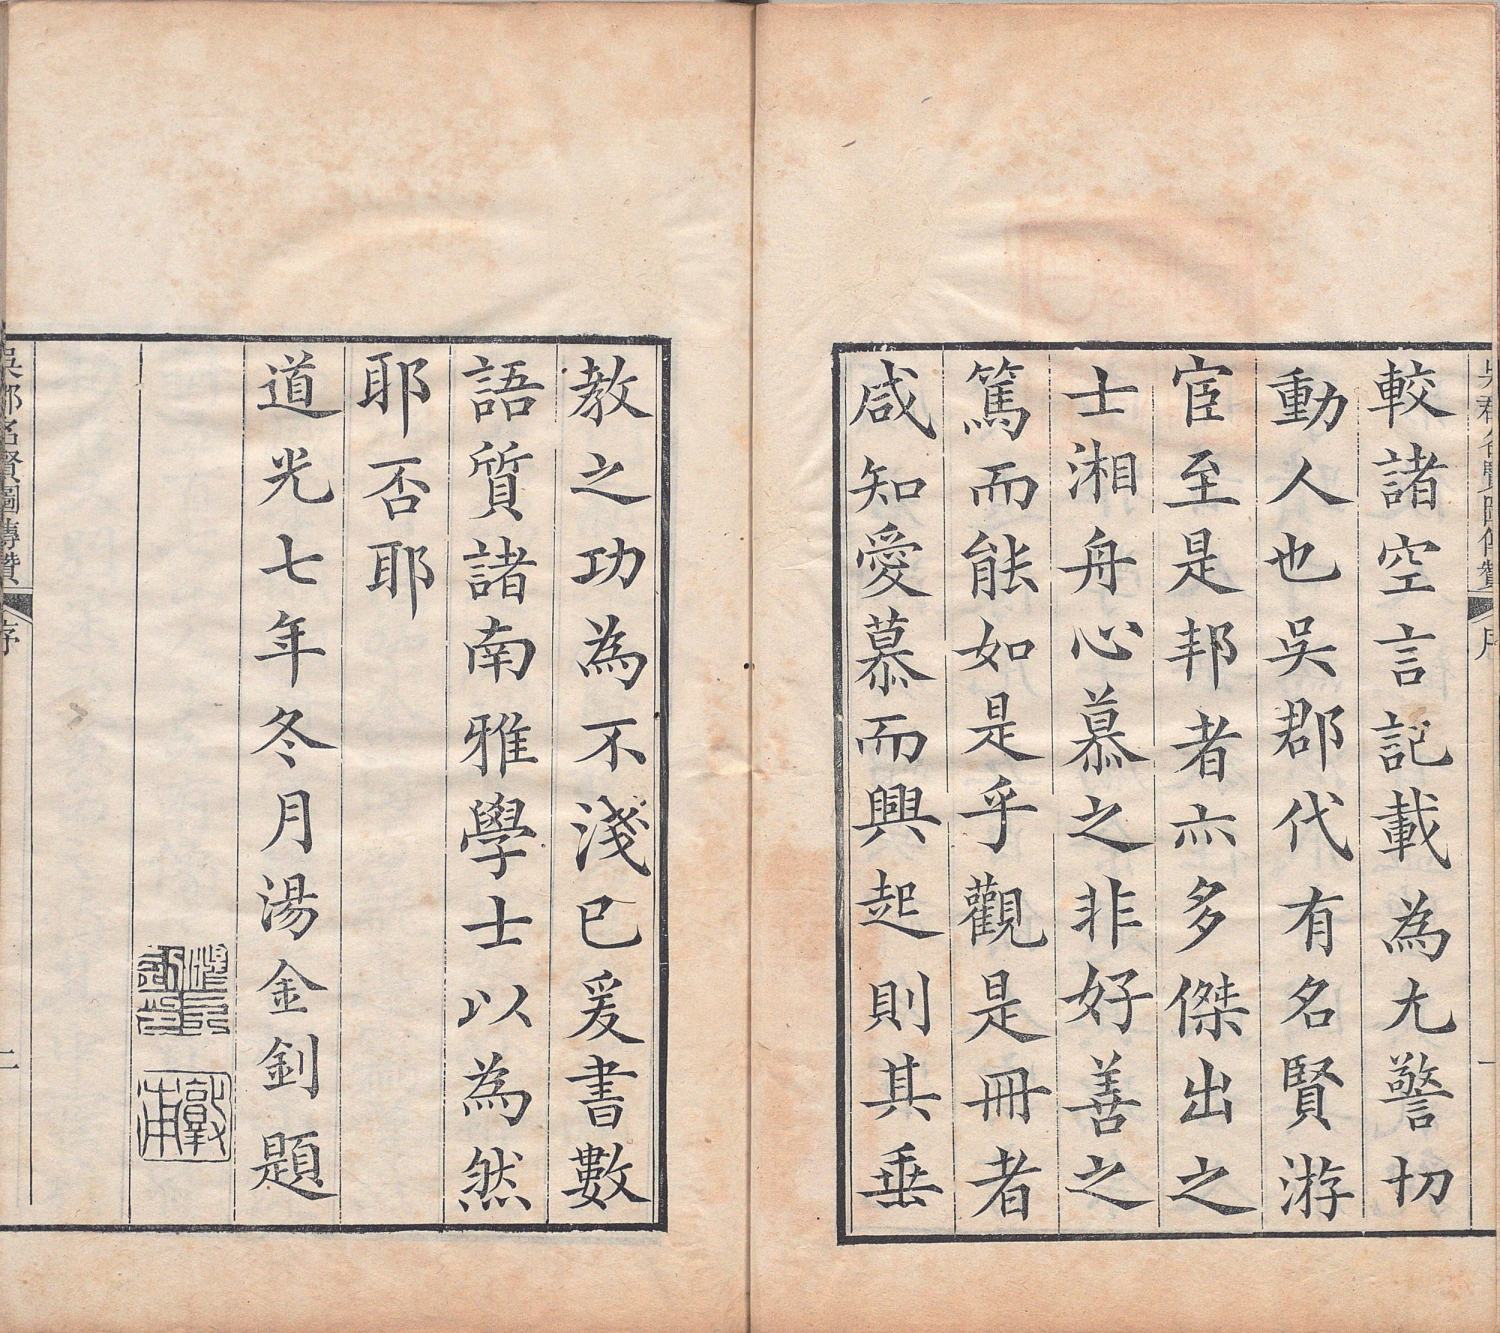 吳郡名賢圖傳贊 序 一
較諸空言記載為尤警切
動人也吳郡代有名賢游
宦至是邦者亦多傑出之
士湘舟心慕之非好善之
篤而能如是乎觀是冊者
咸知愛慕而興起則其垂
教之功為不淺已爰書數
語質諸南雅學士以為然
耶否耶
道光七年冬月湯金釗題
敦甫
吳郡名賢圖傳贊 序 二